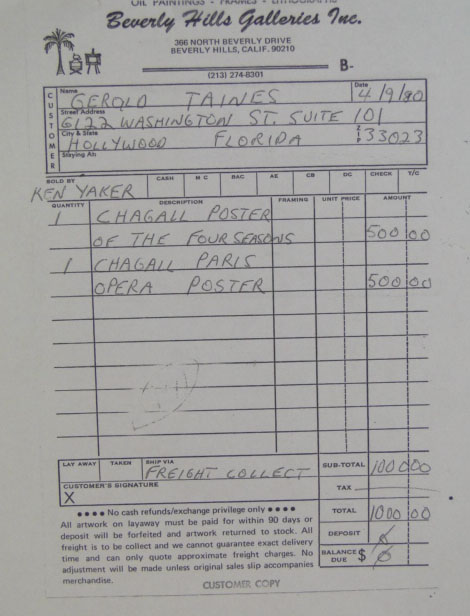 OIL PAINTINGS • FRAMES • LITHOGRAPHS
Beverly Hills Galleries Inc.
366 NORTH BEVERLY DRIVE
BEVERLY HILLS, CALIF. 90210
(213) 274-8301
B-
CUSTOMER
Name GEROLD TAINES Date 4/9/80
Street Address 6122 WASHINGTON ST. SUITE 101
City & State HOLLYWOOD FLORIDA ZIP 33023
Staying At:
SOLD BY CASH M C BAC AE CB DC CHECK T/C
KEN YAKER
QUANTITY DESCRIPTION FRAMING UNIT PRICE AMOUNT
1 CHAGALL POSTER
OF THE FOUR SEASONS 500 00
1 CHAGALL PARIS
OPERA POSTER 500 00
LAY AWAY TAKEN SHIP VIA FREIGHT COLLECT SUB-TOTAL 1000 00
CUSTOMER'S SIGNATURE TAX
X TOTAL 1000 00
• • • • No cash refunds/exchange privilege only • • • •
All artwork on layaway must be paid for within 90 days or
deposit will be forfeited and artwork returned to stock. All
freight is to be collect and we cannot guarantee exact delivery
time and can only quote approximate freight charges. No
adjustment will be made unless original sales slip accompanies
merchandise.
DEPOSIT
BALANCE DUE $
CUSTOMER COPY